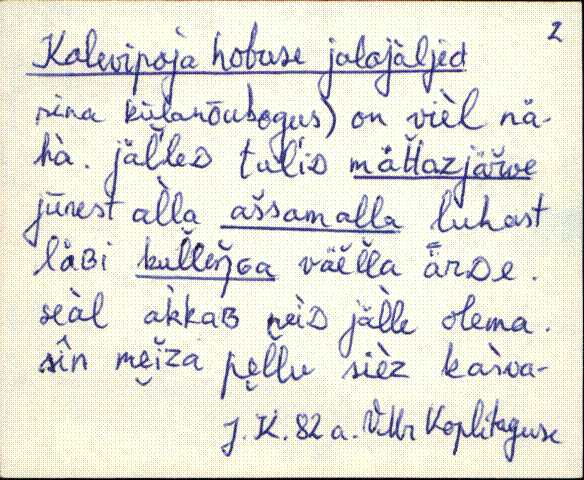 2
Kalevipoja hobuse jalajäljed
sina külanõukogus) on vièl nä-
hà. jäl̆leᴅ tul̆iᴅ mät̆tazjär̆ve
jūrest al̀la aššamalla luhast
läʙi kul̆leŋɢa väĕl̆la är̄ᴅe.
seàl ak̀kaʙ neìᴅ jäl̀le olema.
sîn mĕiza pel̆lu sièz kasva-
J. K. 82 a. V.Mr Koplitaguse